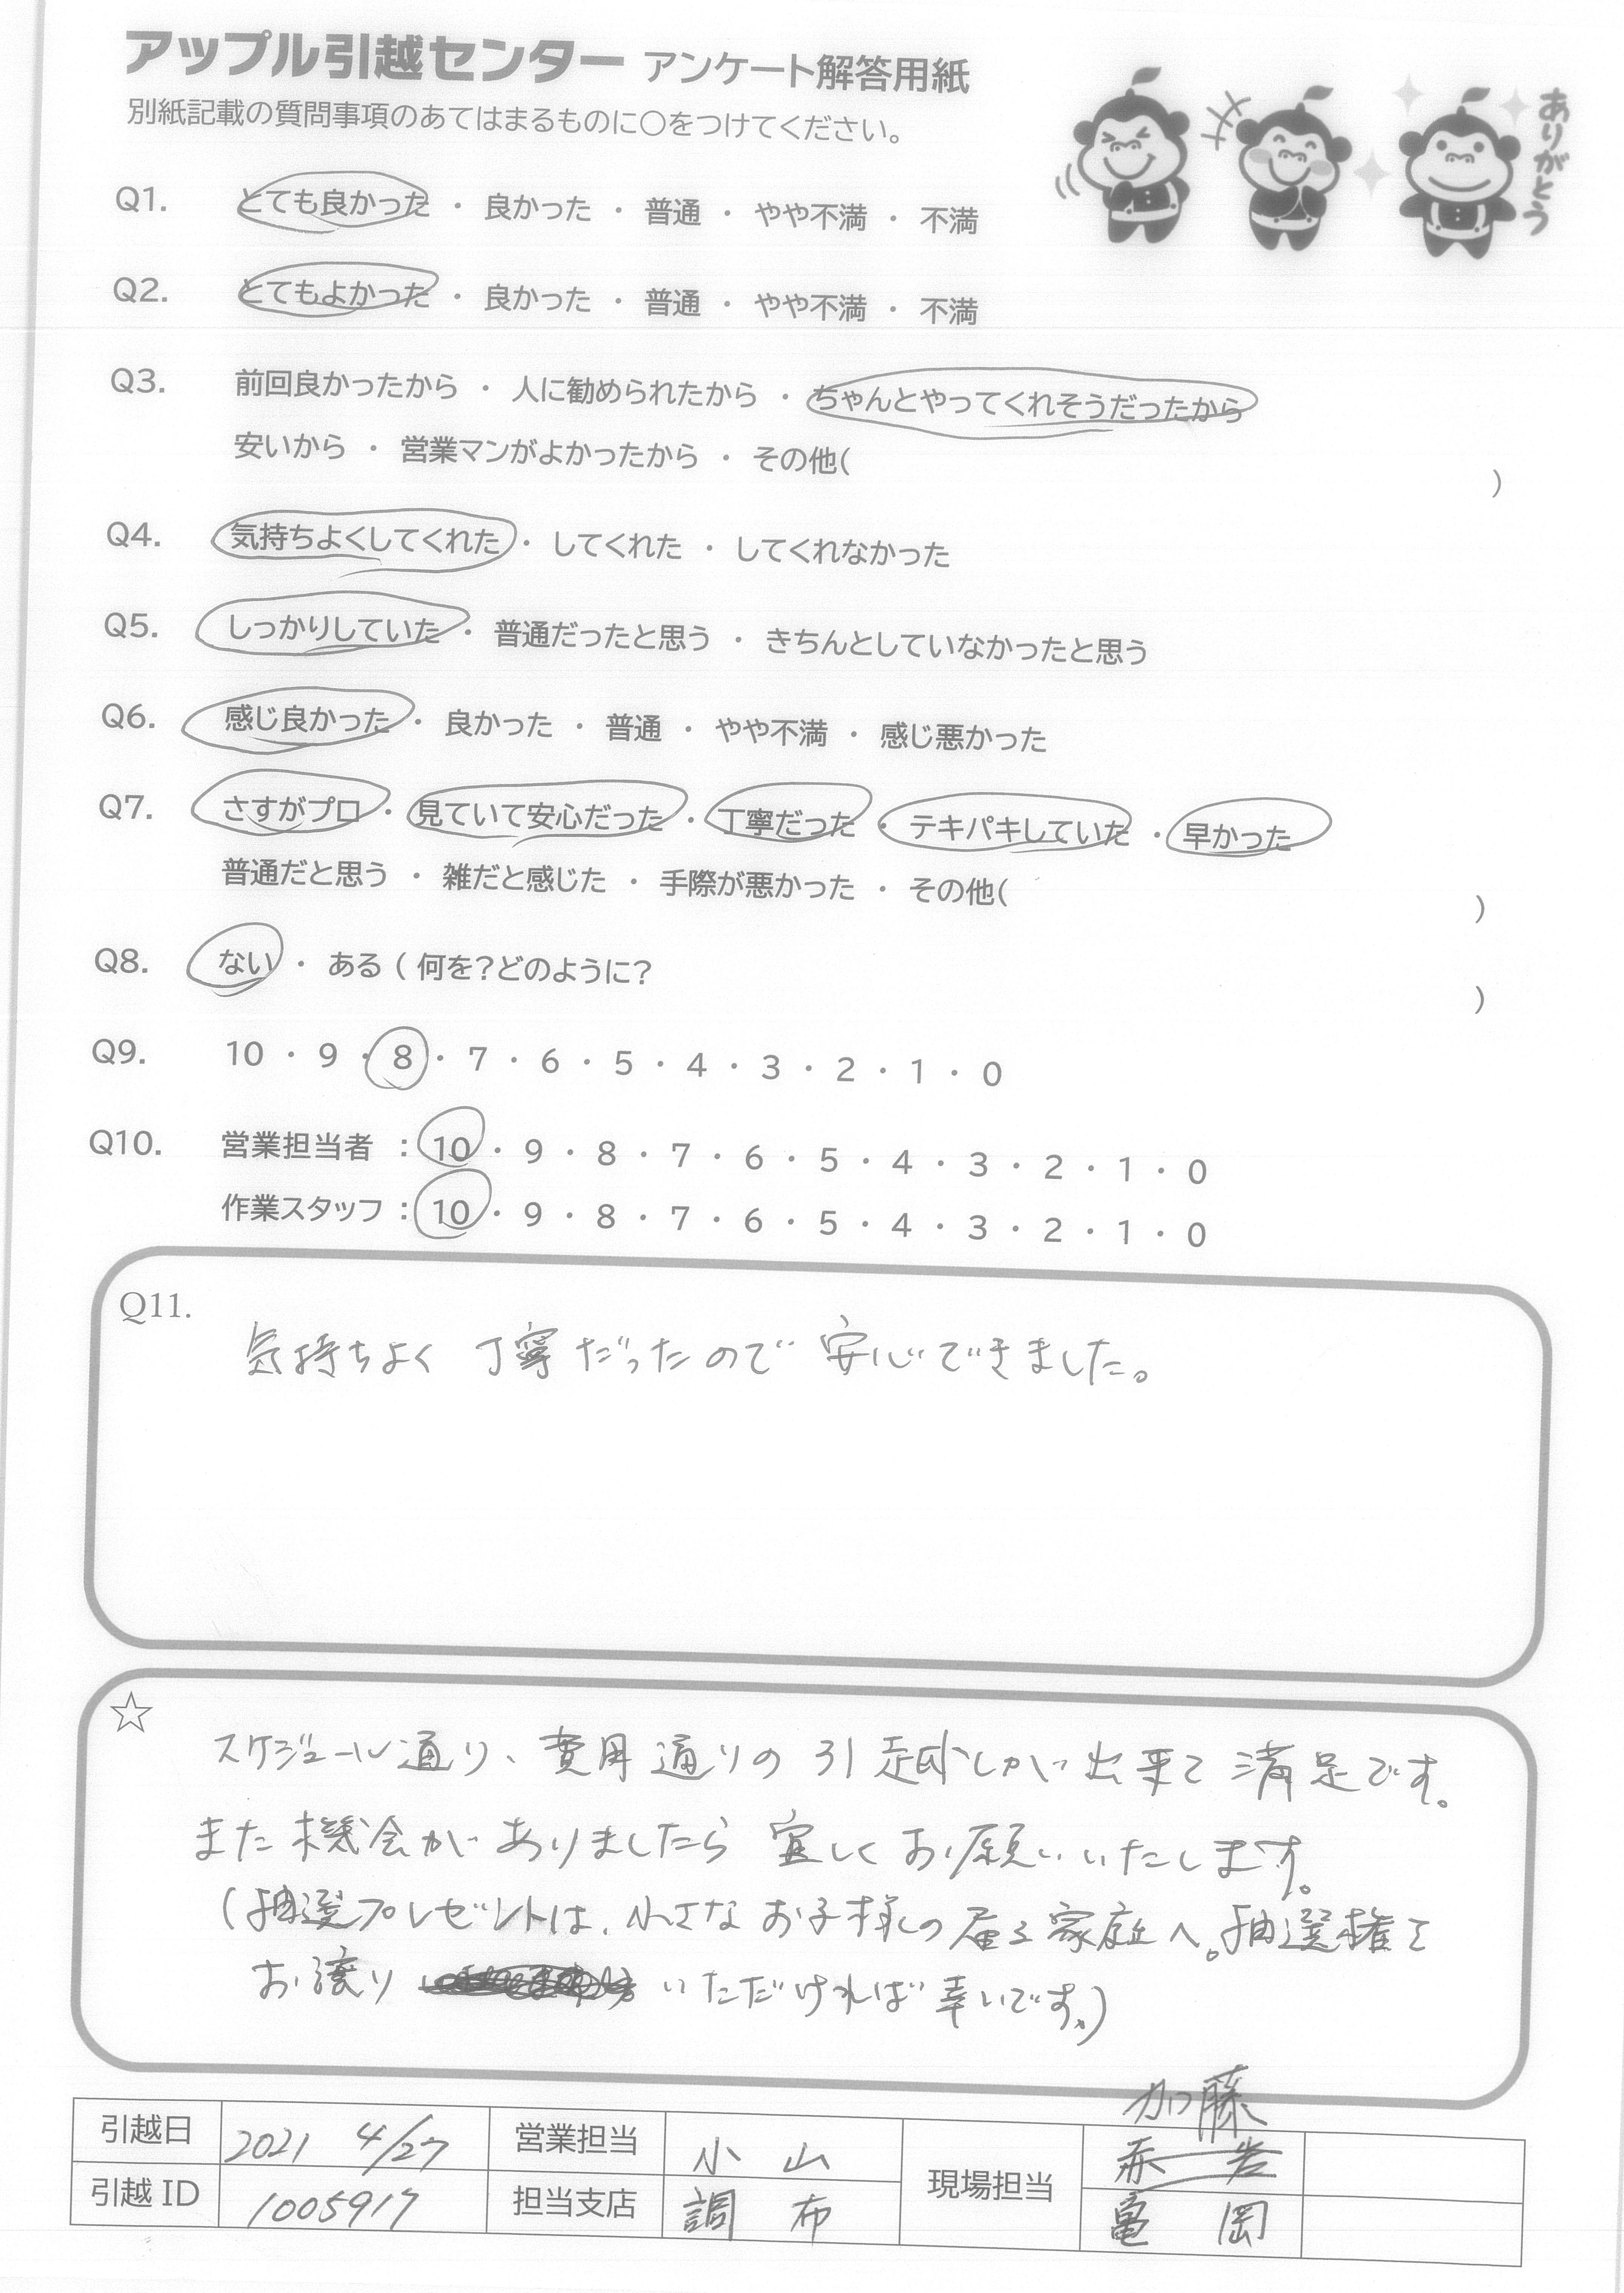 アップル引越センター アンケート解答用紙
別紙記載の質問事項のあてはまるものに○をつけてください。
ありがとう
Q1. とても良かった ・ 良かった ・ 普通 ・ やや不満 ・ 不満
Q2. とてもよかった ・ 良かった ・ 普通 ・ やや不満 ・ 不満
Q3. 前回良かったから ・ 人に勧められたから ・ ちゃんとやってくれそうだったから
安いから ・ 営業マンがよかったから ・ その他( )
Q4. 気持ちよくしてくれた ・ してくれた ・ してくれなかった
Q5. しっかりしていた ・ 普通だったと思う ・ きちんとしていなかったと思う
Q6. 感じ良かった ・ 良かった ・ 普通 ・ やや不満 ・ 感じ悪かった
Q7. さすがプロ ・ 見ていて安心だった ・ 丁寧だった ・ テキパキしていた ・ 早かった
普通だと思う ・ 雑だと感じた ・ 手際が悪かった ・ その他( )
Q8. ない ・ ある ( 何を?どのように? )
Q9. 10 ・ 9 ・ 8 ・ 7 ・ 6 ・ 5 ・ 4 ・ 3 ・ 2 ・ 1 ・ 0
Q10. 営業担当者 : 10 ・ 9 ・ 8 ・ 7 ・ 6 ・ 5 ・ 4 ・ 3 ・ 2 ・ 1 ・ 0
作業スタッフ : 10 ・ 9 ・ 8 ・ 7 ・ 6 ・ 5 ・ 4 ・ 3 ・ 2 ・ 1 ・ 0
Q11.
気持ちよく 丁寧だったので 安心できました。
☆
スケジュール通り、費用通りの引越しが出来て満足です。
また機会がありましたら宜しくお願いいたします。
(抽選プレゼントは、小さなお子様の居る家庭へ。抽選権を
お譲り いただければ幸いです。)
加藤
引越日 2021 4/27 営業担当 小山 現場担当 赤岩
引越ID 1005917 担当支店 調布 亀岡